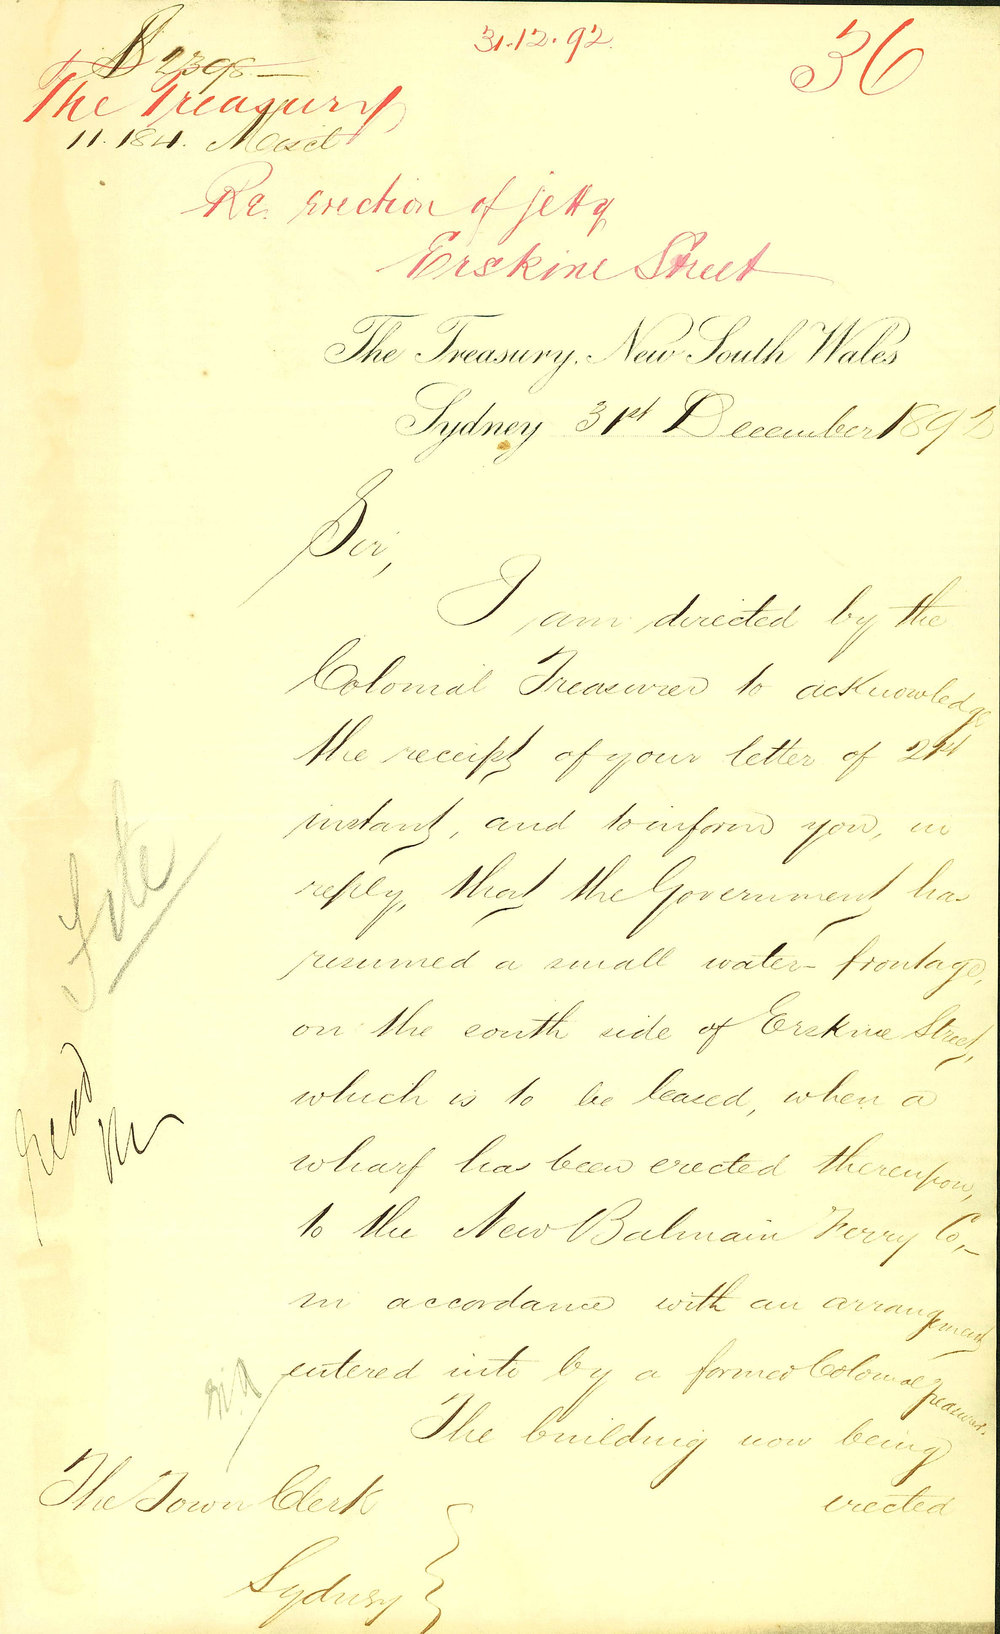 31.12.92.
36
B 2398
The Treasury
11.184.
Re. erection of jetty
Erskine Street
The Treasury, New South Wales
Sydney 31st December 1892
Sir,
I am directed by the
Colonial Treasurer to acknowledge
the receipt of your letter of 21st
instant, and to inform you, in
reply, that the Government has
resumed a small water-frontage,
on the south side of Erskine Street,
which is to be leased, when a
wharf has been erected thereupon,
to the New Balmain Ferry Co,-
in accordance with an arrangement
entered into by a former Colonial Treasurer.
The building now being
erected
The Town Clerk
Sydney